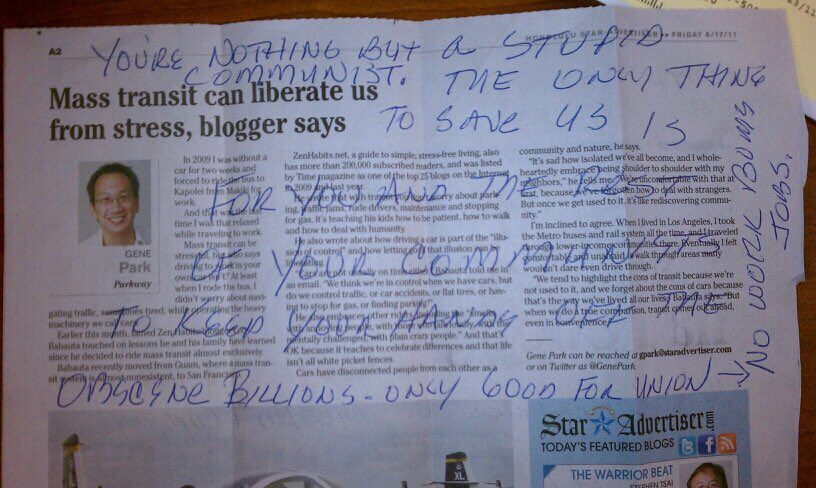 A2
HONOLULU STAR-ADVERTISER >> FRIDAY 6/17/11
YOU'RE NOTHING BUT A STUPID
COMMUNIST. THE ONLY THING
TO SAVE US IS
FOR YOU AND
OF YOUR
TO KEEP YOUR HANDS OFF
OBSCENE BILLIONS - ONLY GOOD FOR UNION
NO WORK BUMS
JOBS.
Mass transit can liberate us
from stress, blogger says
GENE
Park
Parkway
In 2009 I was without a
car for two weeks and
forced to ride the bus to
Kapolei from Makiki for
work.
And that was the last
time I was that relaxed
while traveling to work.
Mass transit can be
stressful, but who says
driving to work in your
own car isn't? At least
when I rode the bus, I
didn't worry about navi-
gating traffic, sometimes tired, while operating the heavy
machinery we call cars.
Earlier this month, famed ZenHabits blogger
Babauta touched on lessons he and his family have learned
since he decided to ride mass transit almost exclusively.
Babauta recently moved from Guam, where a mass tran-
sit system is almost nonexistent, to San Francisco.
ZenHabits.net, a guide to simple, stress-free living, also
has more than 200,000 subscribed readers, and was listed
by Time magazine as one of the top 25 blogs on the Internet
in 2009 and last year.
He wrote that with transit you don't worry about park-
ing, traffic jams, rude drivers, maintenance and stopping
for gas. It's teaching his kids how to be patient, how to walk
and how to deal with humanity.
He also wrote about how driving a car is part of the "illu-
sion of control" and how letting go of that illusion can be
liberating.
usually on time either, Babauta told me in
an email. "We think we're in control when we have cars, but
do we control traffic, or car accidents, or flat tires, or hav-
ing to stop for gas, or finding parking?"
He also embraces other riders,
people, with
mentally challenged, with plain crazy people." And that's
OK because it teaches to celebrate differences and that life
isn't all white picket fences.
Cars have disconnected people from each other as a
community and nature, he says.
"It's sad how isolated we've all become, and I whole-
heartedly embrace being shoulder to shoulder with my
neighbors," he tells me. "We're uncomfortable with that at
first, because we've forgotten how to deal with strangers.
But once we get used to it, it's like rediscovering commu-
nity."
I'm inclined to agree. When I lived in Los Angeles, I took
the Metro buses and rail system all the time, and I traveled
through lower-income communities there. Eventually I felt
comfortable and unafraid to walk through areas many
wouldn't dare even drive through.
"We tend to highlight the cons of transit because we're
not used to it, and we forget about the cons of cars because
that's the way we've lived all our lives," Babauta says. "But
when we do a true comparison, transit comes out ahead,
even in convenience."
Gene Park can be reached at gpark@staradvertiser.com
or on Twitter as @GenePark.
XL
Star Advertiser.com
TODAY'S FEATURED BLOGS
THE WARRIOR BEAT
STEPHEN TSAI